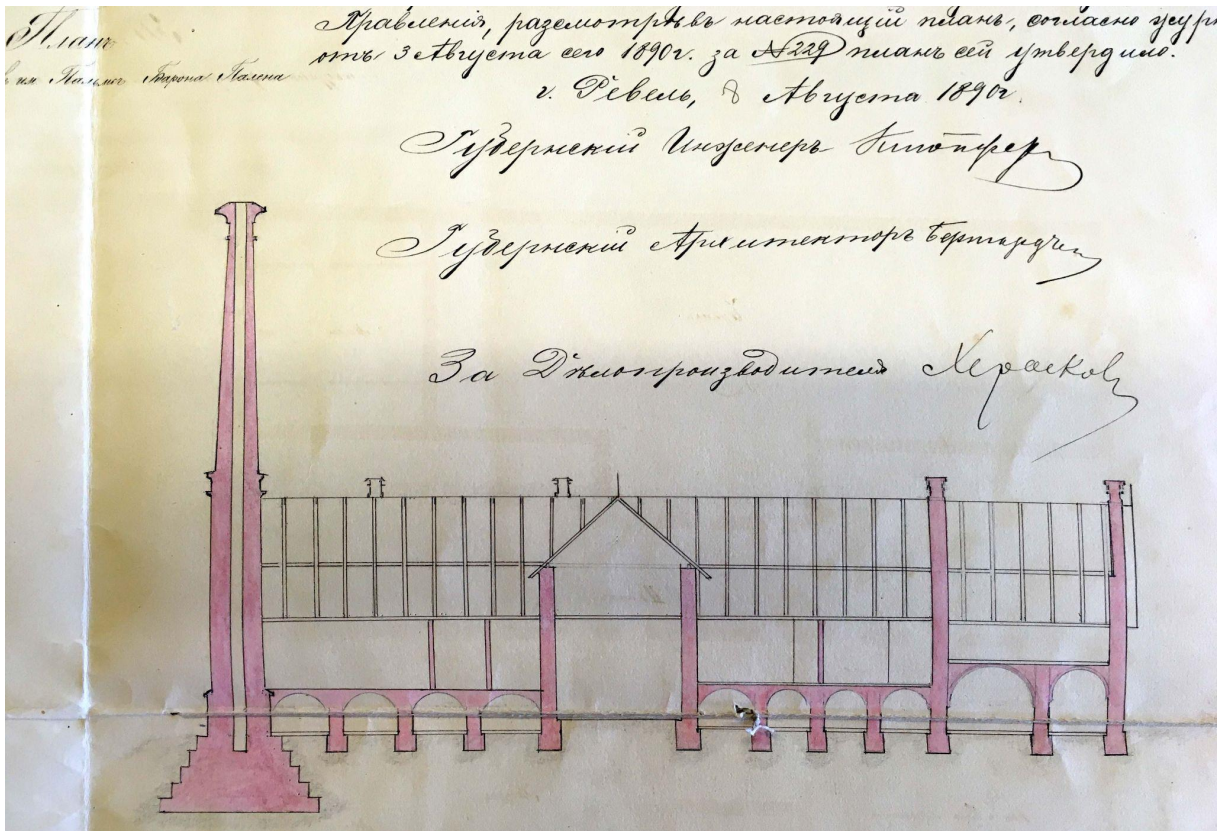 Планъ
им. Пальмсъ Барона Палена
Правленія, разсмотрѣвъ настоящій планъ, согласно журн
отъ 3 Августа сего 1890г. за № 229 планъ сей утвердило.
г. Ревель, 8 Августа 1890г.
Губернскій Инженеръ Кнюпфер
Губернскій Архитекторъ Бернгард
За Дѣлопроизводителя Херасков